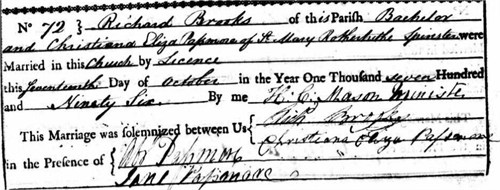 No 72} Richard Brooks of this Parish Bachelor
and Christiana Eliza Papmore of St. Mary Rotherhithe Spinster were
Married in this Church by Licence
this Seventeenth Day of October in the Year One Thousand seven Hundred
and Ninety Six. By me H. C. Mason Minister
This Marriage was solemnized between Us Brooks
Christiana Eliza Papmore
in the Presence of Papmore
Jane Papmore